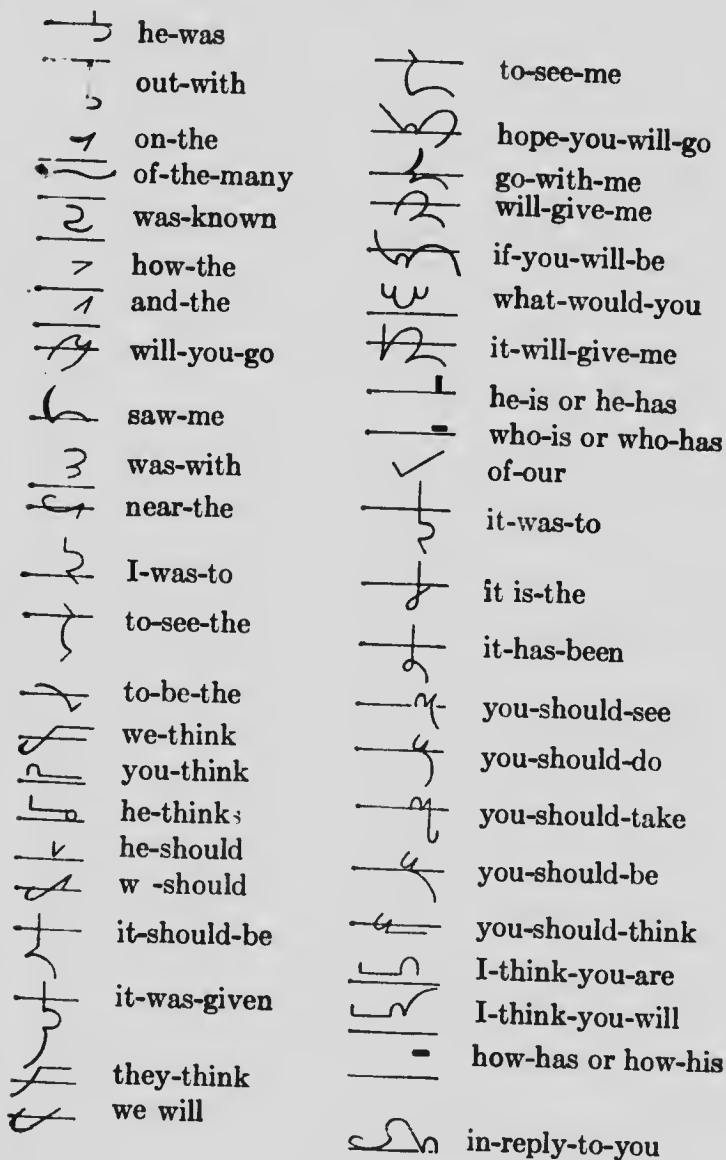 he-was
out-with
on-the
of-the-many
was-known
how-the
and-the
will-you-go
saw-me
was-with
near-the
I-was-to
to-see-the
to-be-the
we-think
you-think
he-thinks
he-should
w -should
it-should-be
it-was-given
they-think
we will
to-see-me
hope-you-will-go
go-with-me
will-give-me
if-you-will-be
what-would-you
it-will-give-me
he-is or he-has
who-is or who-has
of-our
it-was-to
it is-the
it-has-been
you-should-see
you-should-do
you-should-take
you-should-be
you-should-think
I-think-you-are
I-think-you-will
how-has or how-his
in-reply-to-you